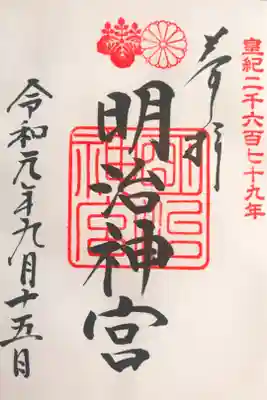 皇紀二千六百七十九年
奉拝
明治神宮
明治神宮
令和元年九月十五日